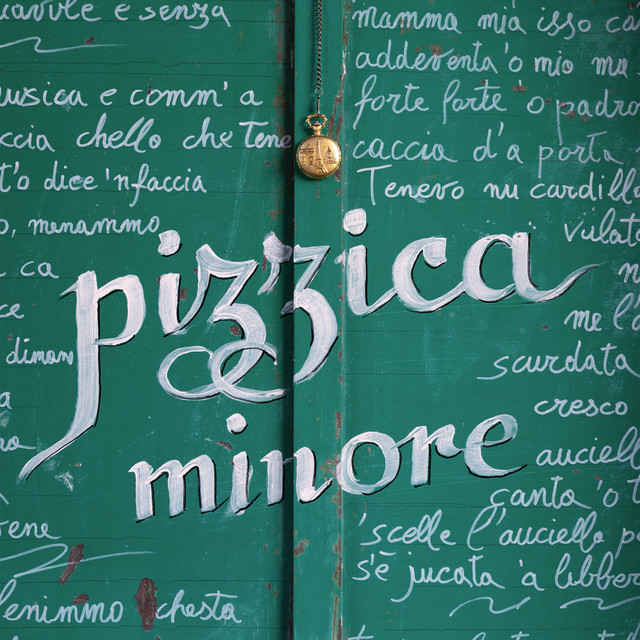 e senza
musica e comm' a
chello che tene
t'o dice 'nfaccia
o, menammo
ca
ce
dimane
a
vene
lenimmo chesta
mamma mia isso ca
addeventa 'o mio ma
forte forte 'o padro
caccia d'a porta
Tenevo nu cardill
vulat
me l'
scurdata
cresco
auciell
canta 'o t
'scelle l'auciello pe
s'è jucata 'a libber
pizzica
minore